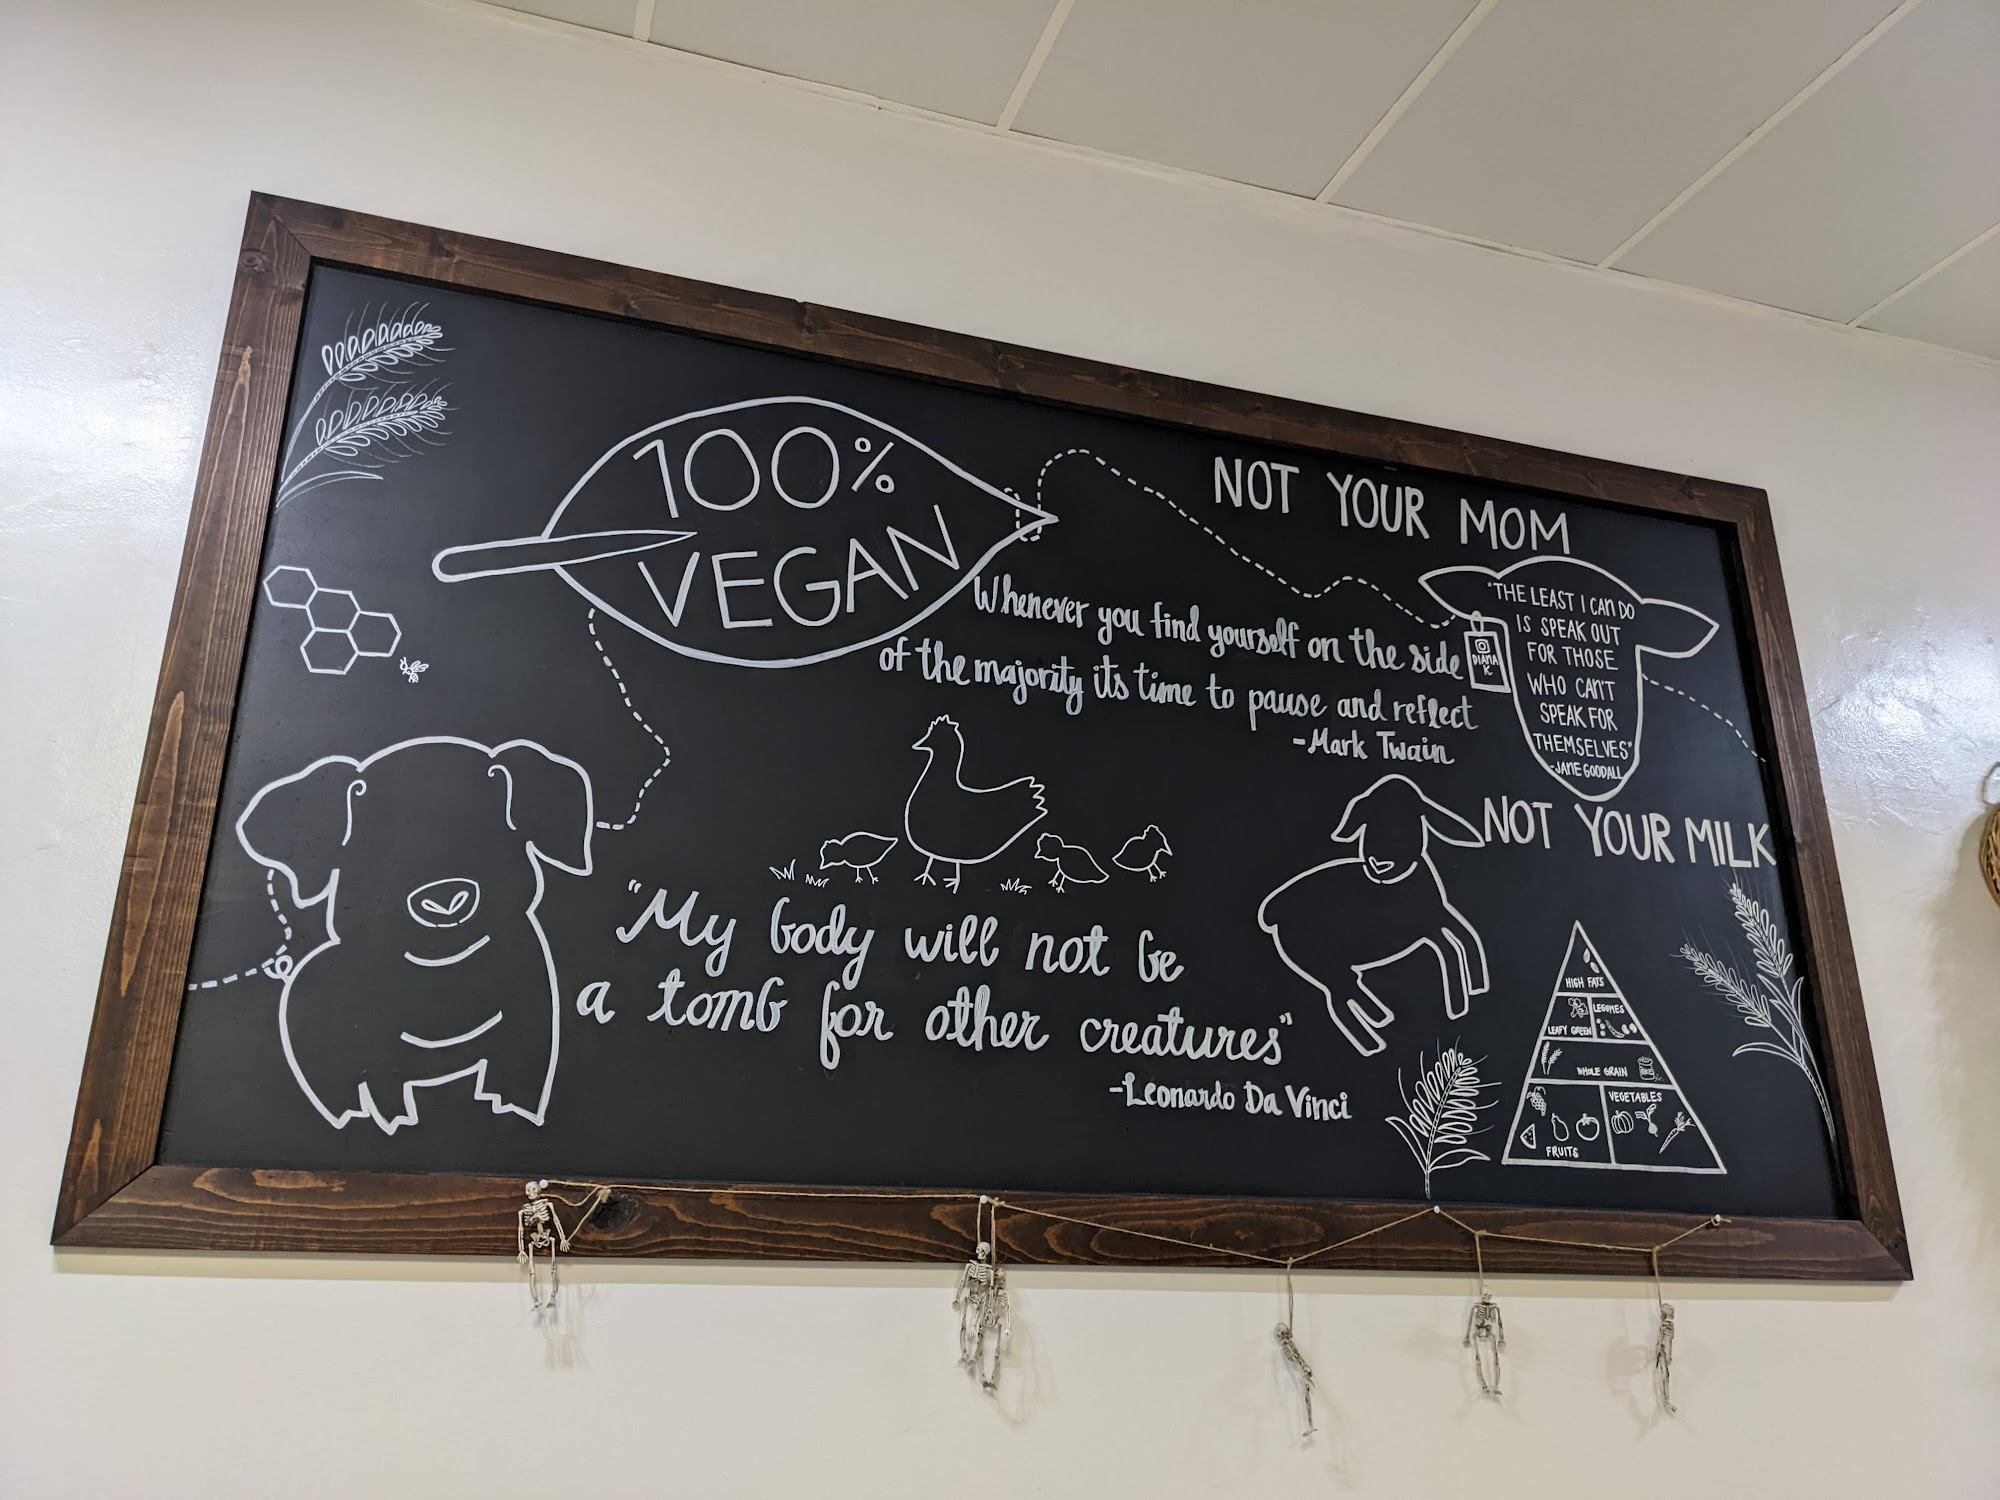 100%
VEGAN
NOT YOUR MOM
Whenever you find yourself on the side
of the majority its time to pause and reflect
-Mark Twain
DIANA
K
"THE LEAST I CAN DO
IS SPEAK OUT
FOR THOSE
WHO CAN'T
SPEAK FOR
THEMSELVES"
-JANE GOODALL
NOT YOUR MILK
"My body will not be
a tomb for other creatures"
-Leonardo Da Vinci
HIGH FATS
LEGUMES
LEAFY GREEN
WHOLE GRAIN
VEGETABLES
FRUITS